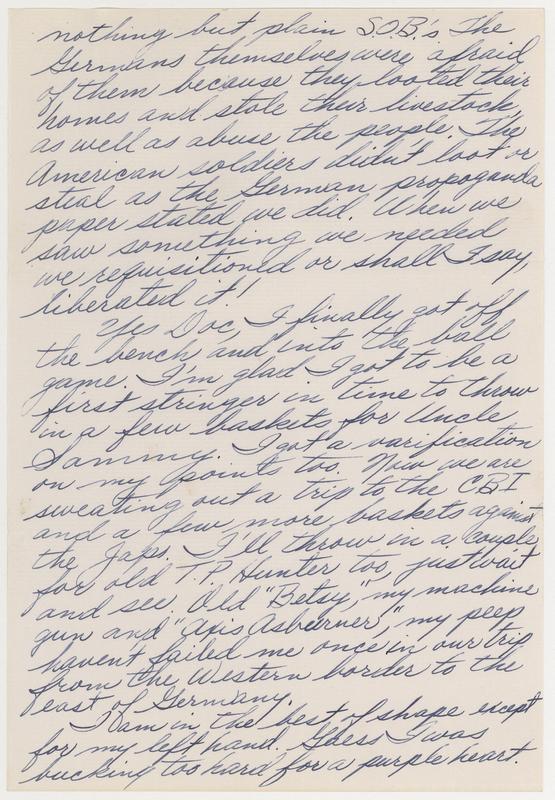 nothing but plain S.O.B.'s The
Germans themselves were afraid
of them because they looted their
homes and stole their livestock
as well as abuse the people. The
American soldiers didn't loot or
steal as the German propoganda
paper stated we did. When we
saw something we needed
we requisitioned or shall I say,
liberated it!
Yes Doc, I finally got off
the bench and into the ball
game. I'm glad I got to be a
first stringer in time to throw
in a few baskets for Uncle
Sammy. I got a varification
on my points too. Now we are
sweating out a trip to the CBI
and a few more baskets against
the Japs. I'll throw in a couple
for old T.P. Hunter too, just wait
and see. Old "Betsy," my machine
gun and "Axis Asburner," my peep
haven't failed me once in our trip
from the Western border to the
east of Germany.
I am in the best of shape except
for my left hand. Guess I was
bucking too hard for a purple heart.